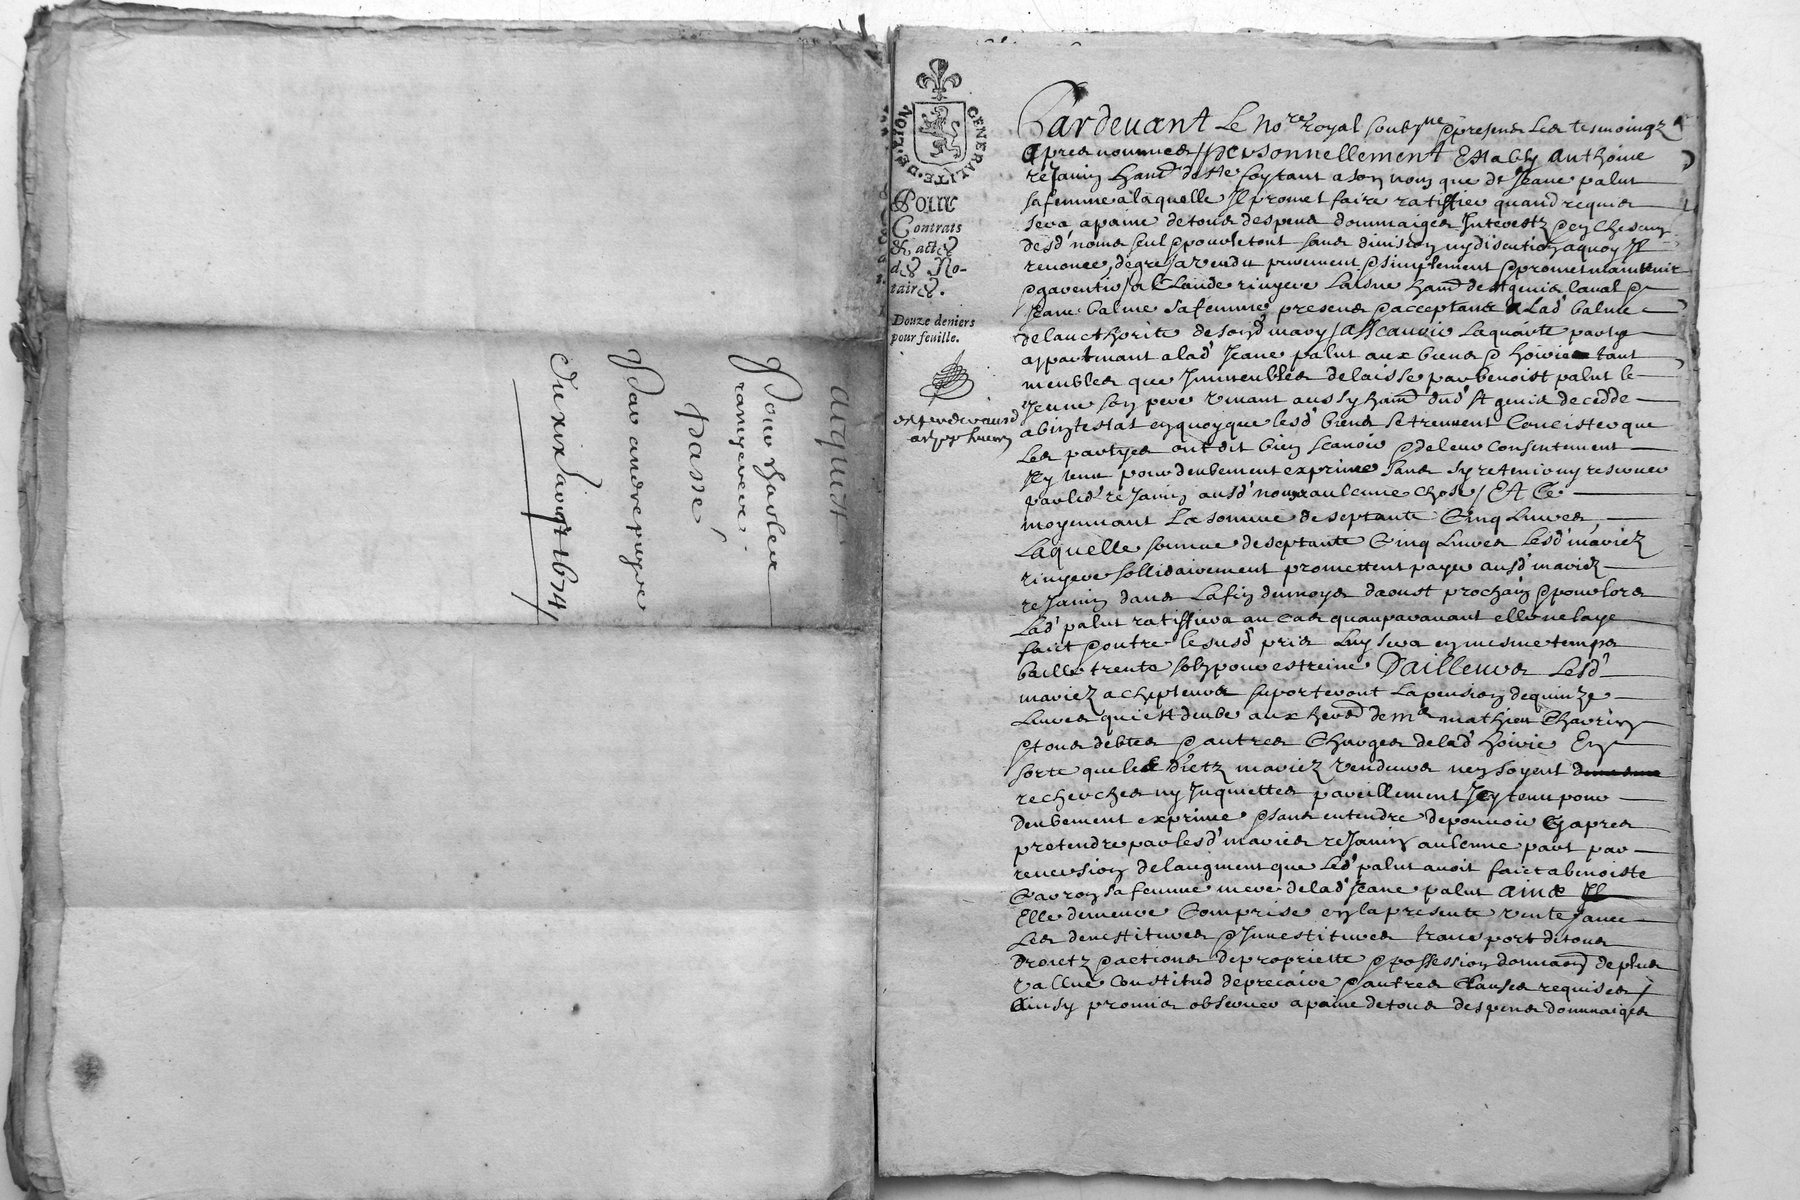 acquist
Pour
passé
Par andre
du xix 1674
GENERALITE·DE·LION
Pour
Contrats
& actes
des No-
taires.
Douze deniers
pour feuille.
Pardevant Le no.re royal soubz.ne & presens Les tesmoingz
apres nommes personnellement Estably anthoine
rejanin hant de Ste foy tant a son nom que de Jeane palut
sa femme a laquelle Il promet faire ratiffier quand requis
sera a paine de tous despens dommaiges Interestz & en chescung
desd' noms seul & pour le tout sans division ny discution a quoy Il
renonce, de gre a vendu purement & simplement & promet maintenir
& garentir a Claude rinyere Laisne hant de St genis laval &
Jeane balme sa femme presens & acceptans Lad' balme
de laucthorite de sond' mary, ascavoir La quarte partye
appartenant a lad' Jeane palut aux biens & hoirie tant
meubles que Immeubles delaisse par benoist palut le
Jeune son pere vivant aussy hant dud' St genis decedde
abintestat en quoy que lesd' biens se treuvent Concister que
Les partyes ont dit bien scavoir & de leur Consentement
Icy tenu pour deubement exprime sans sy retenir ny reserver
par led' rejanin ausd' noms aulcune chose, Et Ce
moyennant La somme de septante Cinq Livres
Laquelle somme de septante Cinq Livres Lesd' mariez
rinyere sollidairement promettent payer ausd' mariez
rejanin dans La fin du moys daoust prochain & pour lors
Lad' palut ratiffiera au cas quauparavant elle ne laye
faict & outre le susd' pris Luy sera en mesme temps
baille trente solz pour estreine D'ailleurs Lesd'
mariez achepteurs suporteront La pension de quinze
Livres qui est deube aux hers de me mathieu Chavrin
& tous debtes & autres Charges de lad' hoirie En
sorte que les dictz mariez vendeurs nen soyent
recherches ny Inquiettes pareillement Icy tenu pour
deubement exprime & sans entendre de pouvoir Cy apres
pretendre par lesd' maries rejanin aulcune part par
reversion de laugment que Led' palut avoit faict a benoiste
Gavron sa femme mere de lad' Jeane palut ains
Elle demeure Comprise en la presente vente, avec
Les devestitures & Investitures transport de tous
droictz & actions de propriette & possession donnaon de plus
vallue Constitud de precaire & autres Clauses requises
Ainsy promis observer a paine de tous despens dommaiges